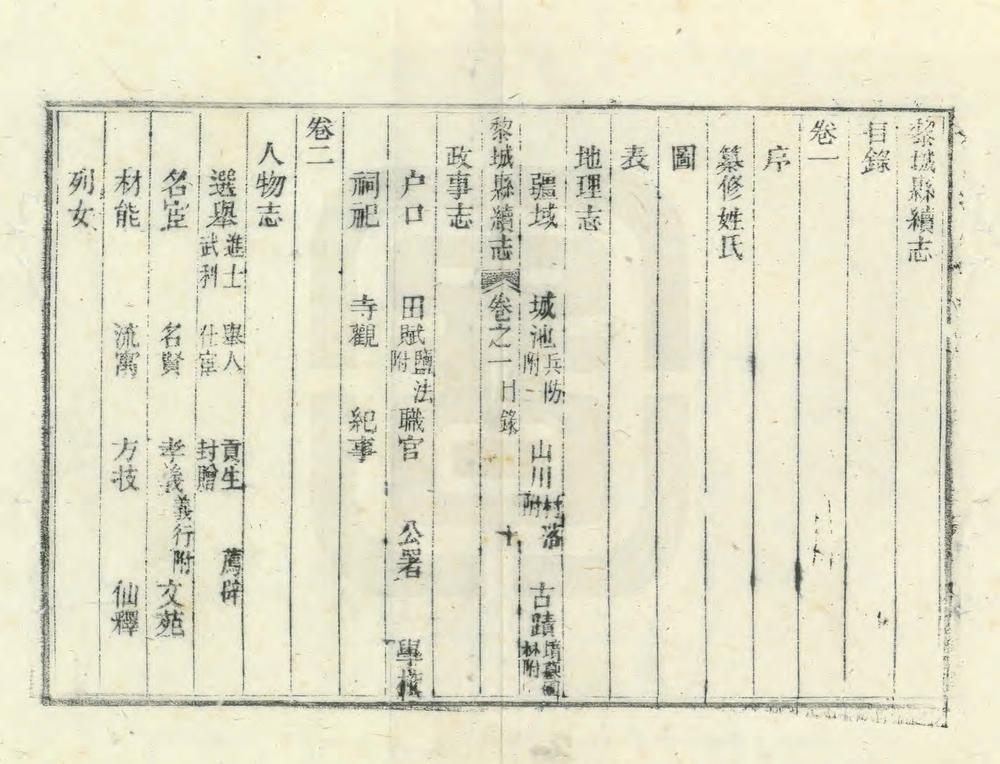 黎城縣續志
目錄
卷一
序
纂修姓氏
圖
表
地理志
疆域 城池兵防附 山川村落附 古蹟墳墓園林附
黎城縣續志 卷之一 目錄 十
政事志
户口 田賦鹽法附 職官 公署 學校
祠祀 寺觀 紀事
卷二
人物志
選舉進士 舉人 貢生 薦辟 武科 仕宦 封贈
名宦 名賢 孝義義行附 文苑
材能 流寓 方技 仙釋
列女